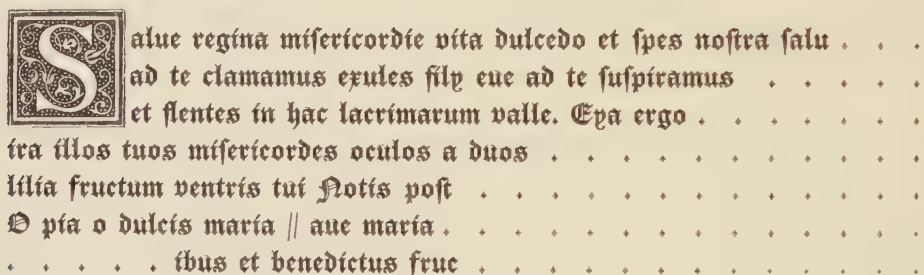 Salue regina miſericordie vita dulcedo et ſpes noſtra ſalu . . .
ad te clamamus exules filp eue ad te ſuſpiramus . . . . .
et flentes in hac lacrimarum valle. Eya ergo . . . . . . .
ira illos tuos miſericordes oculos a duos . . . . . . . . . . .
lilia fructum ventris tui Notis poſt . . . . . . . . . . . . .
O pia o dulcis maria // aue maria . . . . . . . . . . . . . .
. . . . . ibus et benedictus fruc . . . . . . . . . . . . .